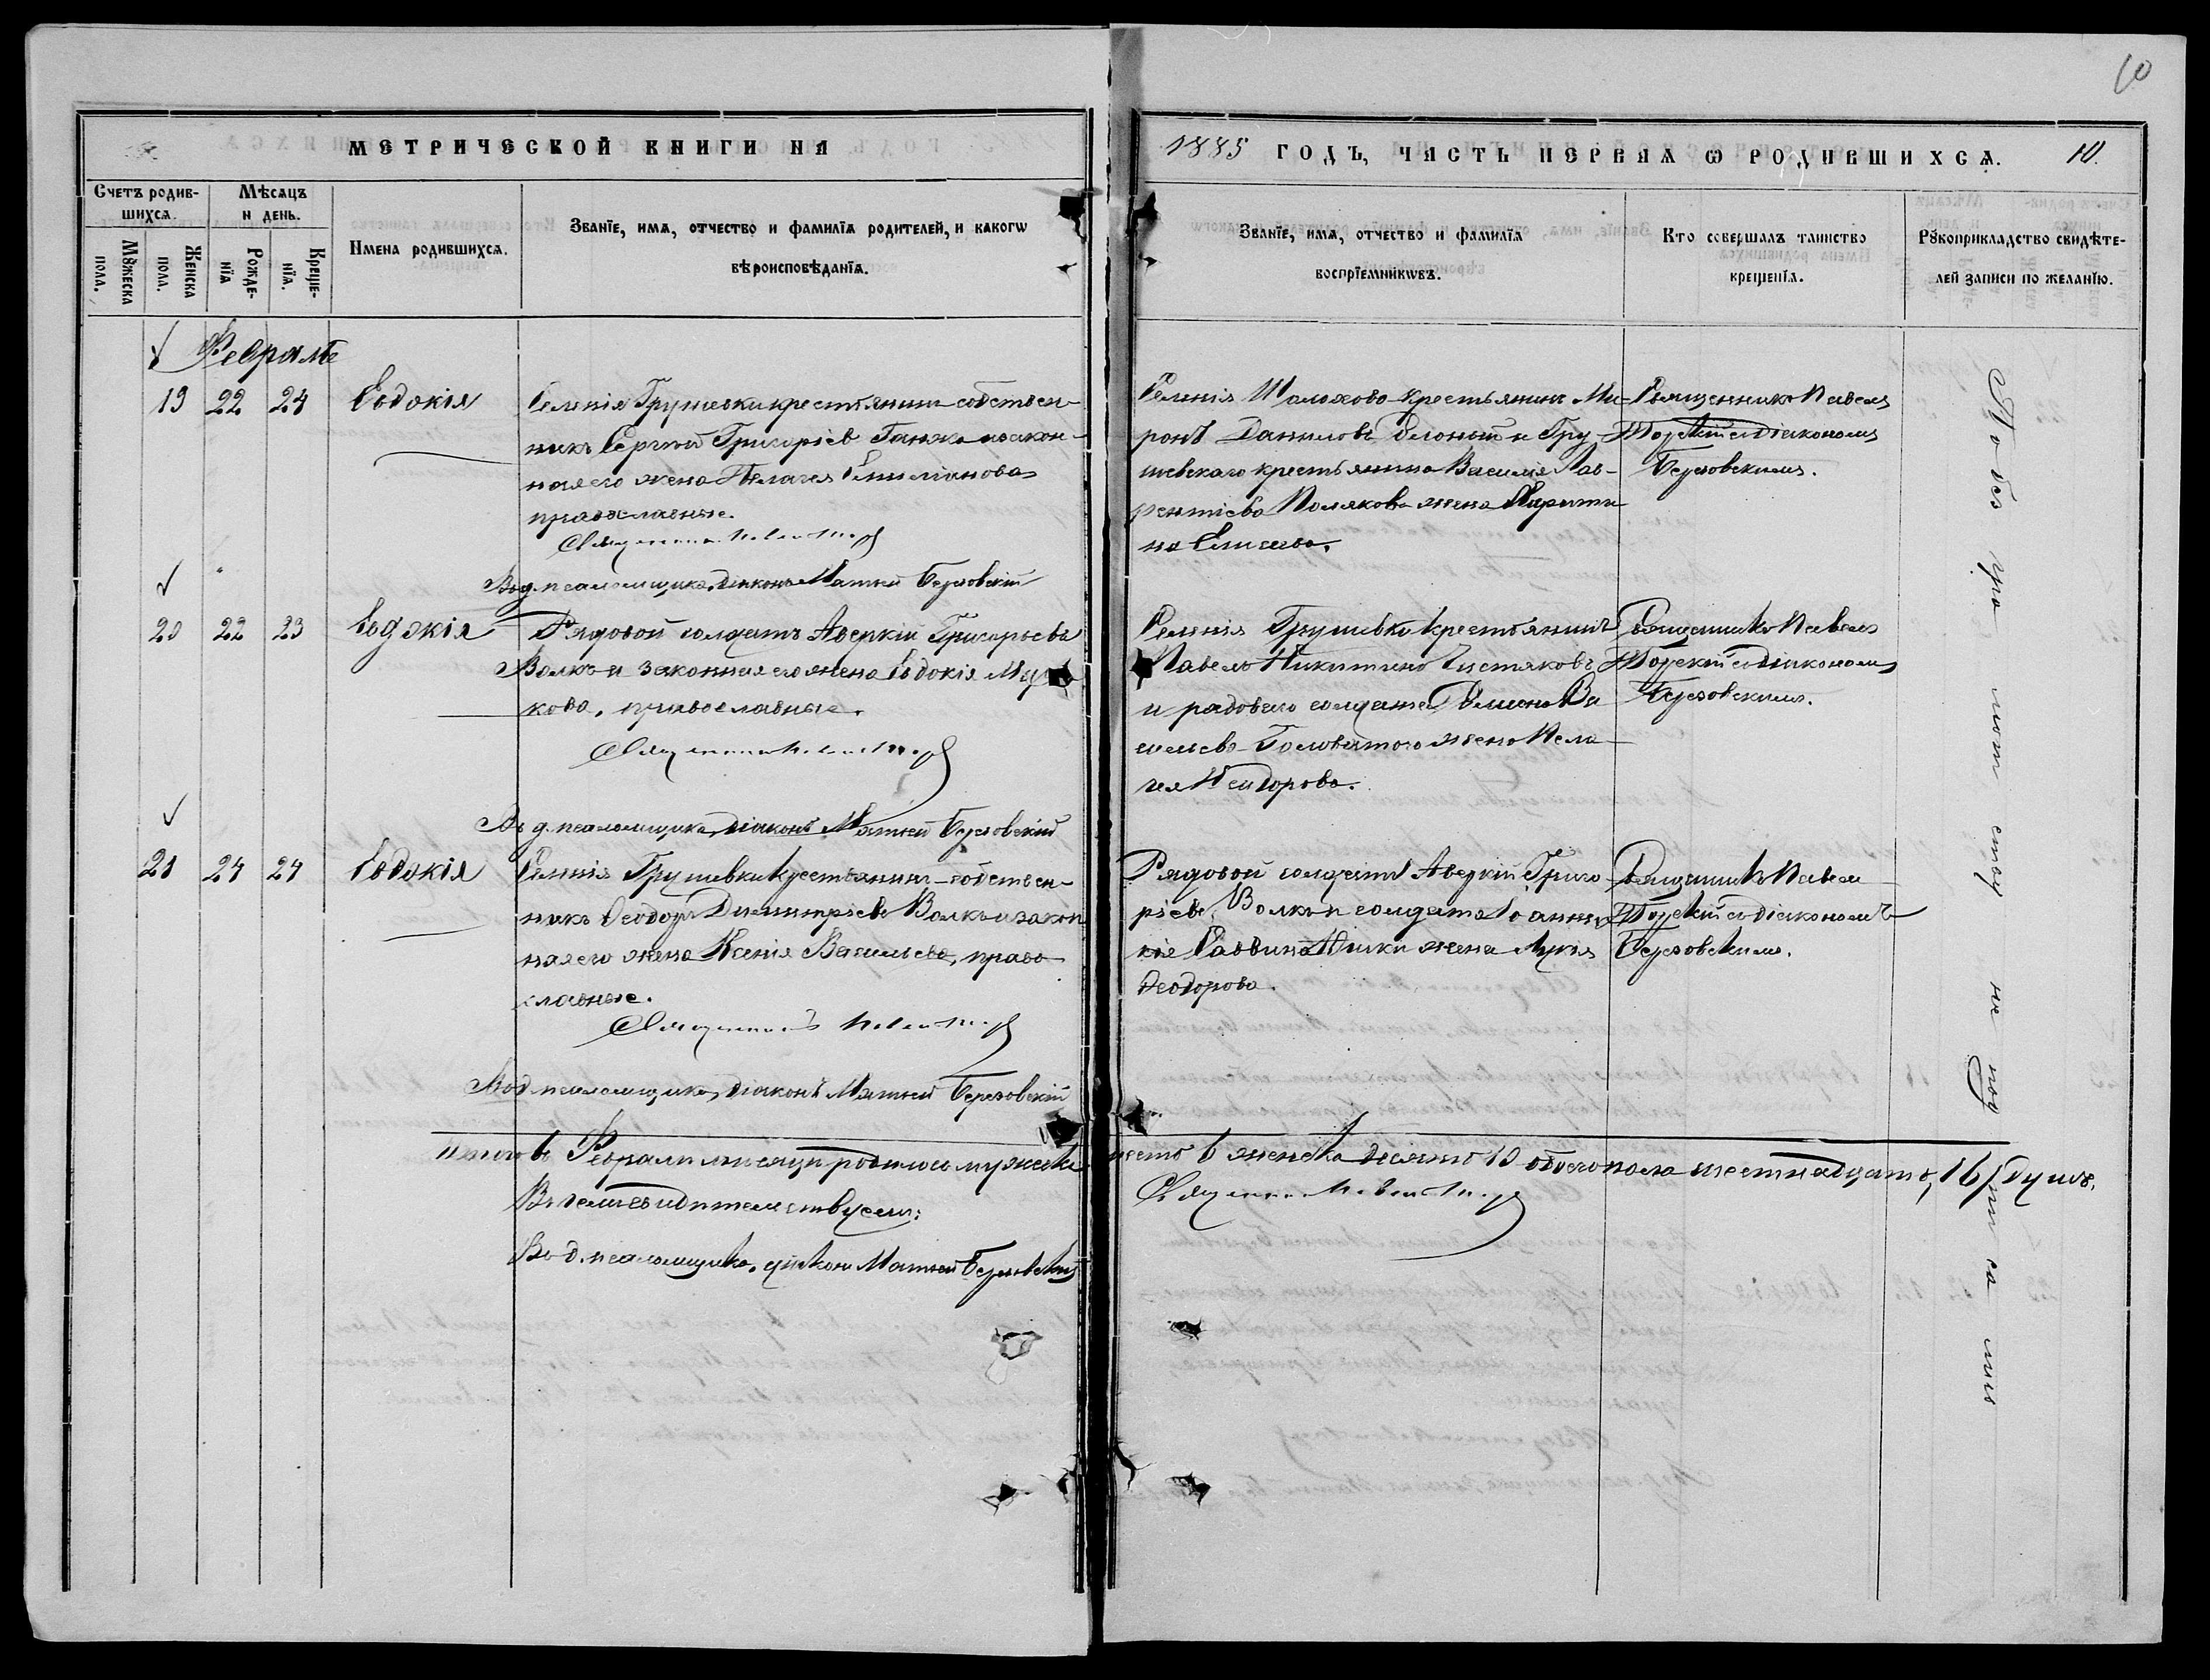 10
МЕТРИЧЕСКОЙ КНИГИ НА
1885 ГОДЪ, ЧАСТЬ ПЕРВАЯ Ѡ РОДИВШИХСѦ. 10.
Счетъ родив-
шихсѧ.
Мѣсѧцъ
и день.
Мꙋжеска
пола.
Женска
пола.
Рожде-
нїѧ
Креще-
нїѧ.
Имена родившихсѧ.
Званїе, имѧ, отчество и фамилїѧ родителей, и какогѡ
вѣроисповѣданїѧ.
Званїе, имѧ, отчество и фамилїѧ
воспрїемникѡвъ.
Кто совершалъ таинство
крещенїѧ.
Рꙋкоприкладство свидѣте-
лей записи по желанїю.
Февраль
19 22 24 Евдокія
Селенія Грушевки крестьянинъ-собствен-
никъ Сергій Григоріевъ Ганжа и закон-
ная его жена Пелагея Емиліанова
православные.
Священникъ Павелъ
Въ д. псаломщика, діаконъ Матѳей Березовскій
Селенія Шолохово крестьянинъ Ми-
ронъ Даниловъ и Гру-
шевскаго крестьянина Василія Лав-
рентіева Полякова жена Харити-
на Елисеева.
Священникъ Павелъ
съ діакономъ
Березовскимъ.
20 22 23 Евдокія
Рядовой солдатъ Аверкій Григорьевъ
Волкъ и законная его жена Евдокія
кова, православные.
Священникъ Павелъ
Въ д. псаломщика, діаконъ Матѳей Березовскій
Селенія Грушевки крестьянинъ
Павелъ Никитинъ Чистяковъ
и рядоваго солдата Симеона Ва
сильева Головатого жена Пела
гея Ѳеодорова.
Священникъ Павелъ
съ діакономъ
Березовскимъ.
21 24 24 Евдокія
Селенія Грушевки крестьянинъ-собствен-
никъ Ѳеодоръ Димитріевъ Волкъ и закон
ная его жена Ксенія Васильева, право
славные.
Священникъ Павелъ
Въ д. псаломщика, діаконъ Матѳей Березовскій
Рядовой солдатъ Аверкій Григо-
ріевъ Волкъ и солдата
Саввина жена Лукія
Ѳеодорова.
Священникъ Павелъ
съ діакономъ
Березовскимъ.
Итого въ Февралѣ мѣсяцѣ родилось мужеска шесть 6 женска десять 10 обоего пола шестнадцать, 16, душъ.
Въ чемъ свидѣтельствуемъ:
Священникъ Павелъ
Въ д. псаломщика, діаконъ Матѳей Березовскій